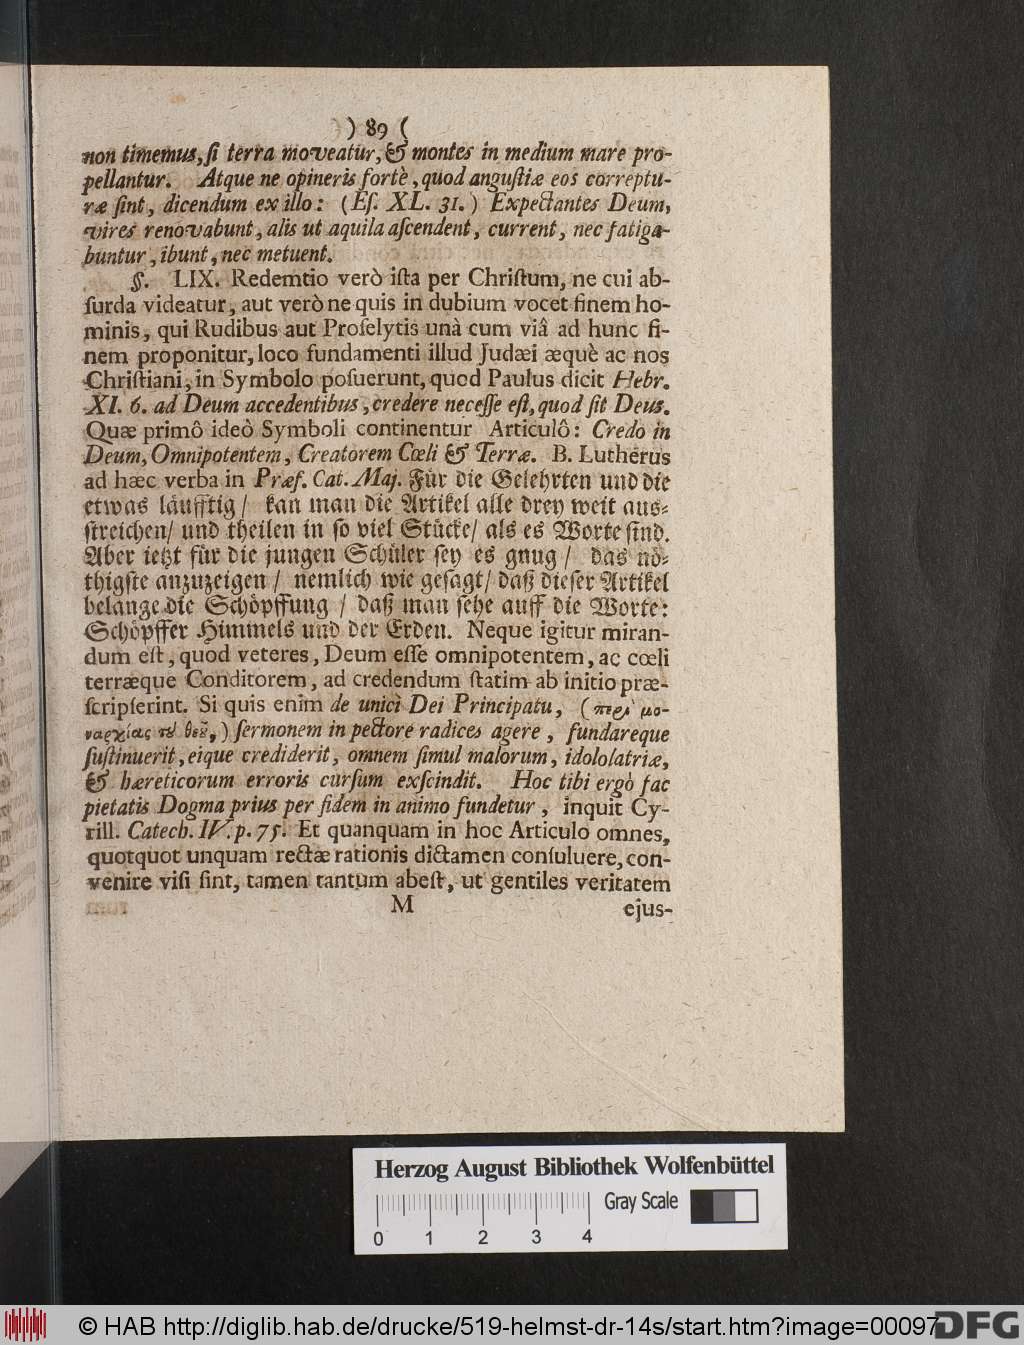 ) 89 (
non timemus, ſi terra moveatur, & montes in medium mare pro-
pellantur. Atque ne opineris fortè, quod anguſtiæ eos correptu-
ræ ſint, dicendum ex illo: (Eſ. XL. 31.) Expectantes Deum,
vires renovabunt, alis ut aquila aſcendent, current, nec fatiga-
buntur, ibunt, nec metuent.
§. LIX. Redemtio verò iſta per Chriſtum, ne cui ab-
ſurda videatur, aut verò ne quis in dubium vocet finem ho-
minis, qui Rudibus aut Proſelytis unà cum viâ ad hunc fi-
nem proponitur, loco fundamenti illud Judæi æquè ac nos
Chriſtiani, in Symbolo poſuerunt, quod Paulus dicit Hebr.
XI. 6. ad Deum accedentibus, credere neceſſe eſt, quod ſit Deus.
Quæ primô ideò Symboli continentur Articulô: Credo in
Deum, Omnipotentem, Creatorem Cœli & Terræ. B. Lutherus
ad hæc verba in Præf. Cat. Maj. Für die Gelehrten und die
etwas läufftig / kan man die Artikel alle drey weit aus-
ſtreichen / und theilen in ſo viel Stücke / als es Worte ſind.
Aber ietzt für die jungen Schüler ſey es gnug / das nö-
thigſte anzuzeigen / nemlich wie geſagt / daß dieſer Artikel
belange die Schöpffung / daß man ſehe auff die Worte:
Schöpffer Himmels und der Erden. Neque igitur miran-
dum eſt, quod veteres, Deum eſſe omnipotentem, ac cœli
terræque Conditorem, ad credendum ſtatim ab initio præ-
ſcripſerint. Si quis enim de unici Dei Principatu, (περὶ μο-
ναρχίας τȣ͂ θεȣ͂,) ſermonem in pectore radices agere, fundareque
ſuſtinuerit, eique crediderit, omnem ſimul malorum, idololatriæ,
& hæreticorum erroris curſum exſcindit. Hoc tibi ergò fac
pietatis Dogma prius per fidem in animo fundetur, inquit Cy-
rill. Catech. IV. p. 75. Et quanquam in hoc Articulo omnes,
quotquot unquam rectæ rationis dictamen conſuluere, con-
venire viſi ſint, tamen tantum abeſt, ut gentiles veritatem
M ejus-
Herzog August Bibliothek Wolfenbüttel
Gray Scale
0 1 2 3 4
© HAB http://diglib.hab.de/drucke/519-helmst-dr-14s/start.htm?image=00097
DFG